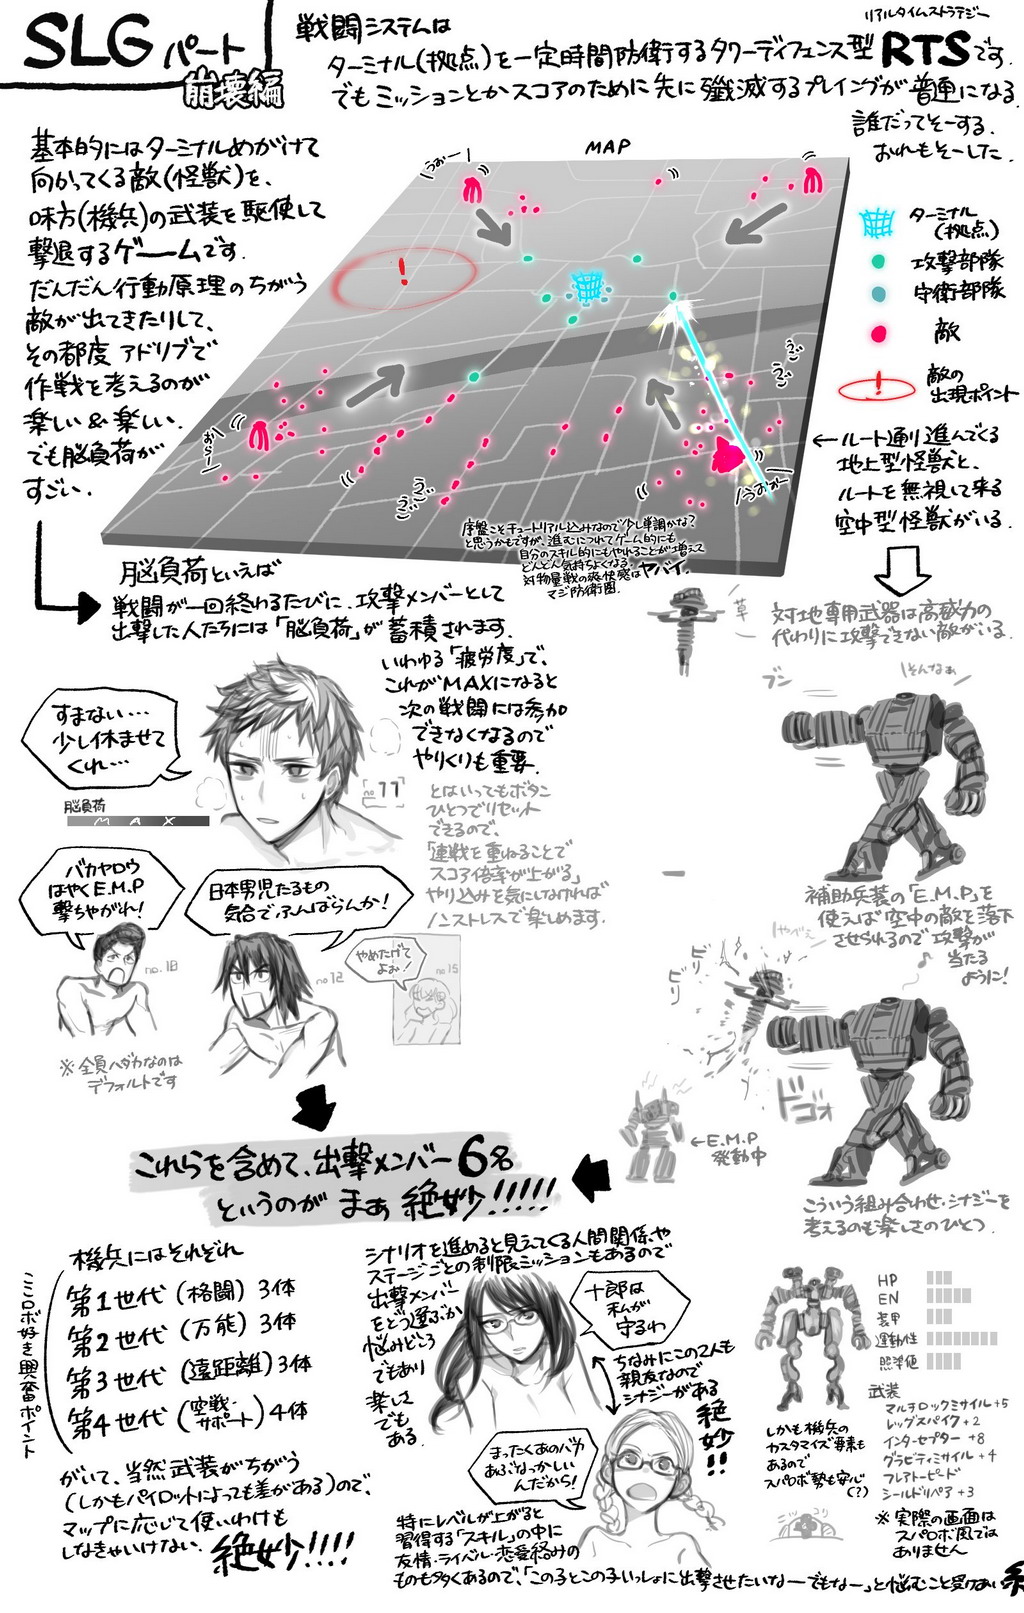 SLGパート
崩壊編
戦闘システムは
ターミナル(拠点)を一定時間防衛するタワーディフェンス型RTSです。
リアルタイムストラテジー
でもミッションとかスコアのために先に殲滅するプレイングが普通になる。
誰だってそーする。
おれもそーした。
基本的にはターミナルめがけて
向かってくる敵(怪獣)を、
味方(機兵)の武装を駆使して
撃退するゲームです。
だんだん行動原理のちがう
敵が出てきたりして、
その都度アドリブで
作戦を考えるのが
楽しい&楽しい。
でも脳負荷が
すごい。
MAP
うおー!
おらー
うごうご
うごうご
うおおー
ターミナル
(拠点)
攻撃部隊
守衛部隊
敵
敵の
出現ポイント
←ルート通り進んでくる
地上型怪獣と、
ルートを無視して来る
空中型怪獣がいる。
序盤こそチュートリアル込みなので少し単調かな?
と思うかもですが、進むにつれてゲーム的にも
自分のスキル的にもやれることが増えて
どんどん気持ちよくなる。
対物量戦の爽快感はヤバイ。
マジ防衛圏。
脳負荷といえば
戦闘が一回終わるたびに、攻撃メンバーとして
出撃した人たちには「脳負荷」が蓄積されます。
いわゆる「疲労度」で、
これがMAXになると
次の戦闘には参加
できなくなるので
やりくりも重要。
すまない…
少し休ませて
くれ…
脳負荷
MAX
no.11
とはいってもボタン
ひとつでリセット
できるので、
「連戦を重ねることで
スコア倍率が上がる」
やり込みを気にしなければ
ノンストレスで楽しめます。
バカヤロウ
はやくE.M.P
撃ちやがれ!
no.10
日本男児たるもの
気合でふんばらんか!
no12
やめたげて
よぉ!
no.15
※全員ハダカなのは
デフォルトです
草
対地専用武器は高威力の
代わりに攻撃できない敵がいる。
ブン
そんなぁ
補助兵装の「E.M.P」を
使えば空中の敵を落下
させられるので攻撃が
当たる
ように!
やべぇ
ビリ
ビリ
ドゴォ
←E.M.P
発動中
こういう組み合わせ・シナジーを
考えるのも楽しさのひとつ。
これらを含めて、出撃メンバー6名
というのがまぁ絶妙!!!!!
機兵にはそれぞれ
第1世代(格闘)3体
第2世代(万能)3体
第3世代(遠距離)3体
第4世代(空戦・サポート)4体
ココロボ好き興奮ポイント
がいて、当然武装がちがう
(しかもパイロットによっても差がある)ので、
マップに応じて使いわけも
しなきゃいけない。絶妙!!!!
シナリオを進めると見えてくる人間関係や
ステージごとの制限ミッションもあるので
出撃メンバー
をどう選ぶか
悩みどころ
でもあり
楽しさ
でも
ある。
十郎は
私が
守るわ
ちなみにこの2人も
親友なので
シナジーがある
絶妙!!
まったくあのバカ
あぶなっかしい
んだから!
特にレベルが上がると
習得する「スキル」の中に
友情・ライバル・恋愛絡みの
ものも多くあるので、「この子とこの子いっしょに出撃させたいなーでもなー」と悩むこと受けあい
HP
EN
装甲
運動性
照準値
武装
マルチロックミサイル+5
レッグスパイク+2
インターセプター+8
グラビティミサイル+4
フレアトーピード
シールドリペア+3
しかも機兵の
カスタマイズ要素も
あるので
スパロボ勢も安心
(?)
ニッコリ
※実際の画面は
スパロボ風では
ありません